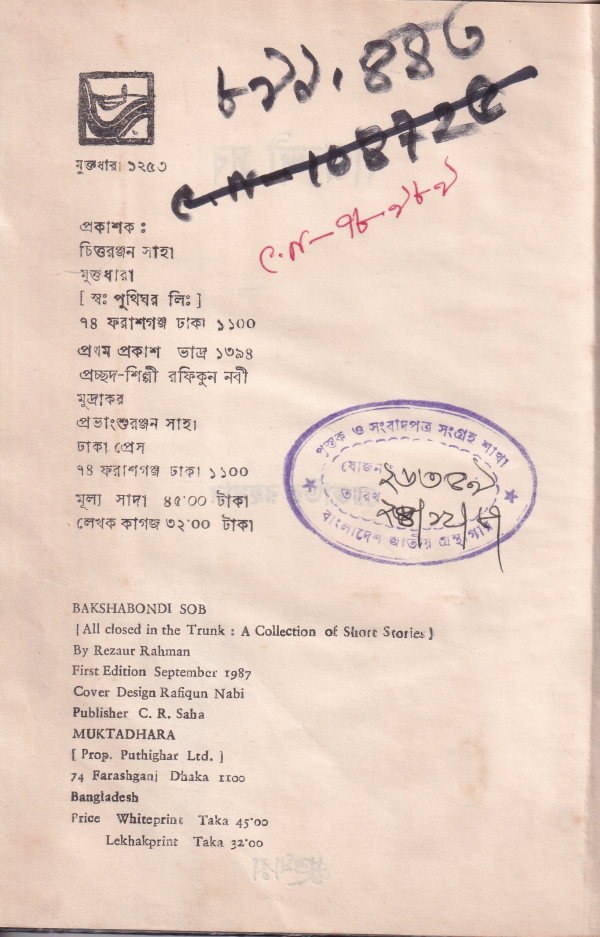 ৮৯১.৪৪৩
c.n-108725
c.n-৭৮.৯৮৯
মুক্তধারা ১২৫৩
প্রকাশক :
চিত্তরঞ্জন সাহা
মুক্তধারা
[ স্বঃ পুথিঘর লিঃ ]
৭৪ ফরাশগঞ্জ ঢাকা ১১০০
প্রথম প্রকাশ ভাদ্র ১৩৯৪
প্রচ্ছদ-শিল্পী রফিকুন নবী
মুদ্রাকর
প্রভাংশুরঞ্জন সাহা
ঢাকা প্রেস
৭৪ ফরাশগঞ্জ ঢাকা ১১০০
মূল্য সাদা ৪৫'০০ টাকা
লেখক কাগজ ৩২'০০ টাকা
পুস্তক ও সংবাদপত্র সংগ্রহ শাখা
যোজন
তারিখ
বাংলাদেশ জাতীয় গ্রন্থাগার
BAKSHABONDI SOB
[ All closed in the Trunk : A Collection of Short Stories ]
By Rezaur Rahman
First Edition September 1987
Cover Design Rafiqun Nabi
Publisher C. R. Saha
MUKTADHARA
[ Prop. Puthighar Ltd. ]
74 Farashganj Dhaka 1100
Bangladesh
Price Whiteprint Taka 45'00
Lekhakprint Taka 32'00